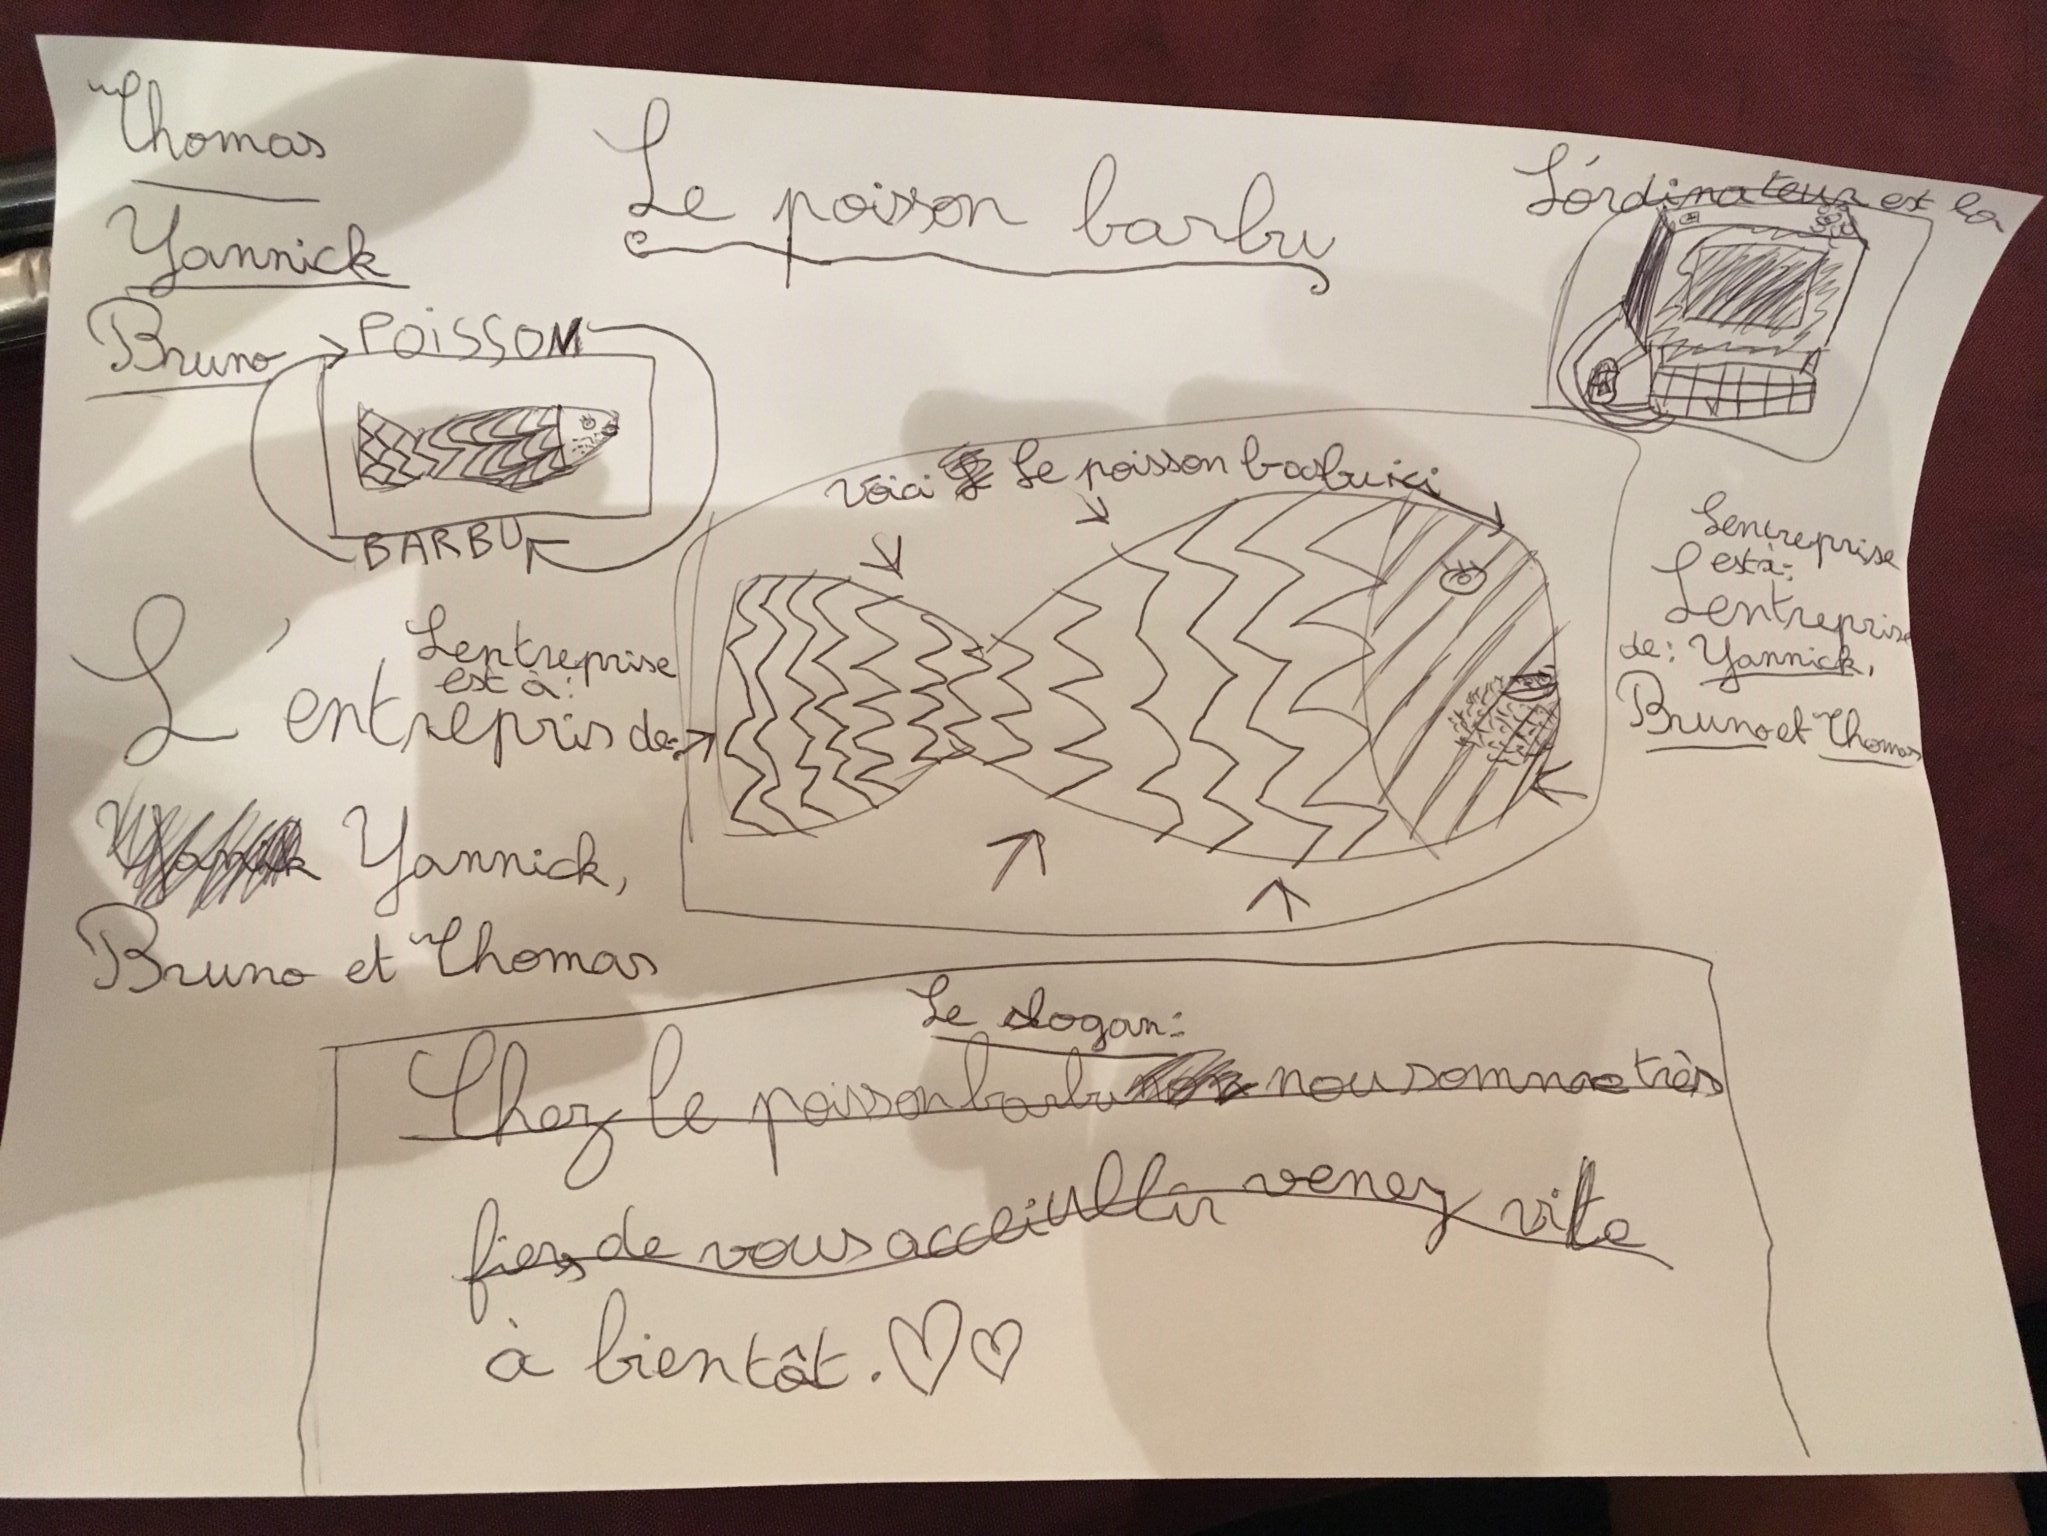 Thomas
Yannick
Bruno
Le poisson barbu
L'órdinateur est la
POISSON
BARBU
voici Le poisson barbu ici
L'entreprise
est à:
L'entrepris de:
Yannick,
Bruno et Thomas
Lentreprise
est à:
Lentreprise
de: Yannick,
Bruno et Thomas
Le slogan:
Chez le poisson barbu nou somme très
fiers de vous acceiullir venez vite
à bientôt.